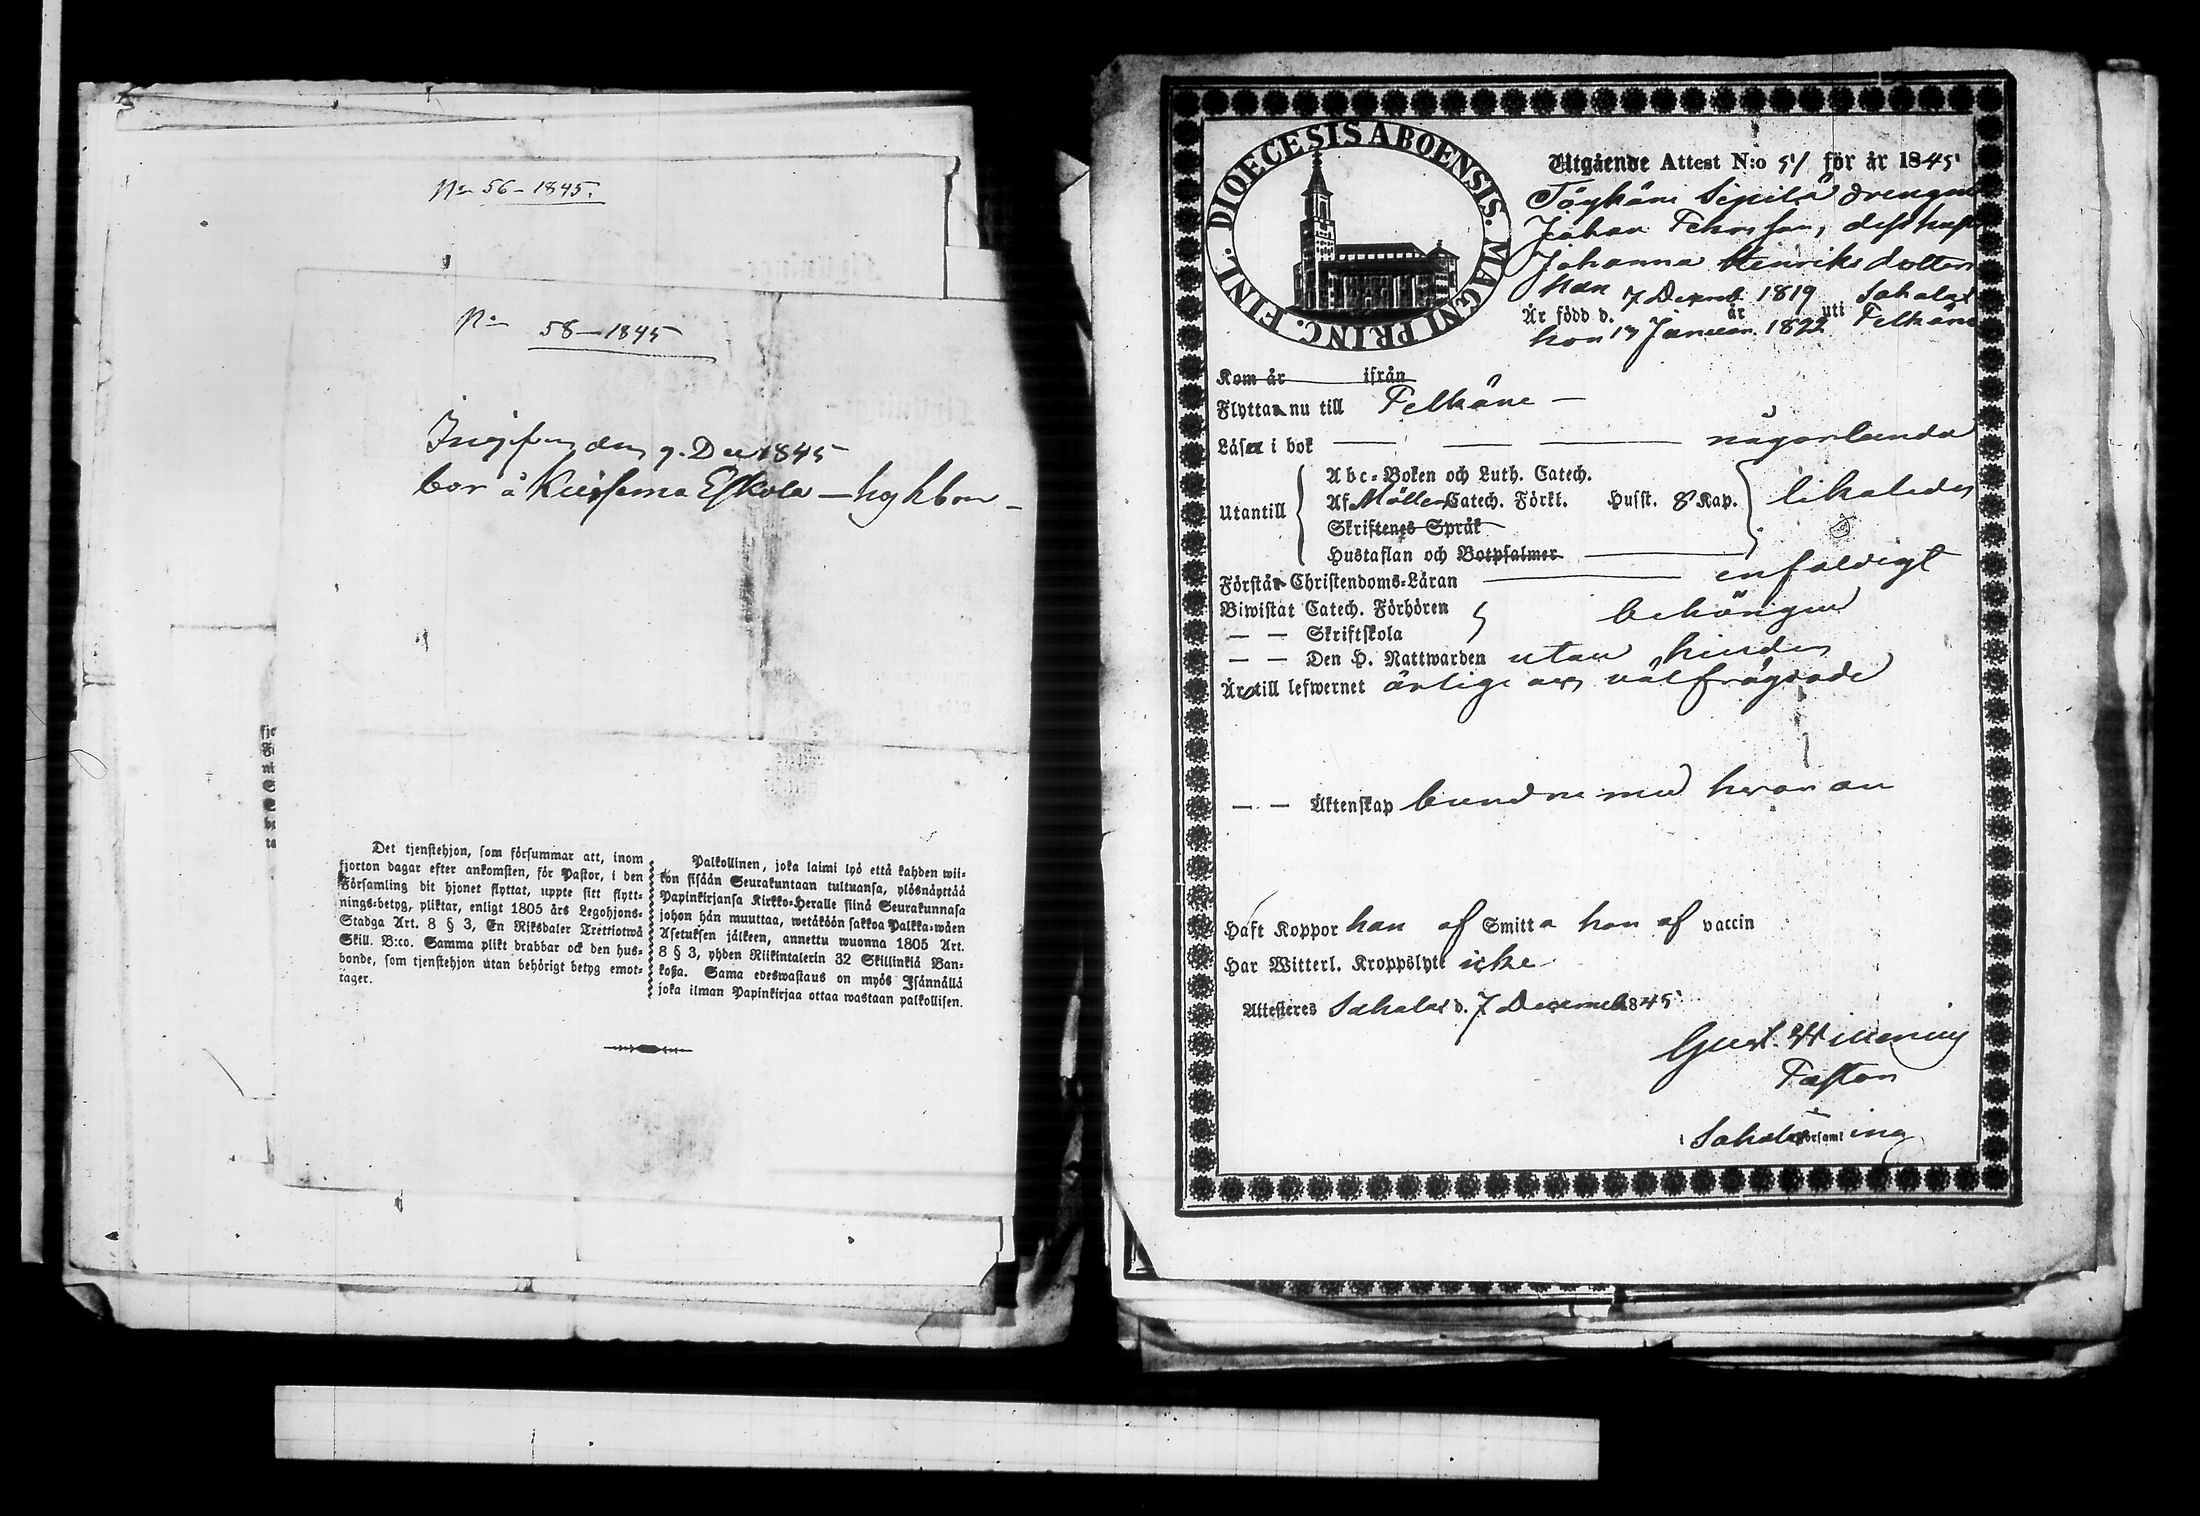 No 56 – 1845.
No 58 – 1845
den 9. Dec 1845
bor å Eskola
Det tjenstehjon, som försummar att, inom
fjorton dagar efter ankomsten, för Pastor, i den
Församling dit hjonet flyttat, uppte sitt flytt-
nings-betyg, pliktar, enligt 1805 års Legohjons-
Stadga Art. 8 § 3, En Riksdaler Trettiotwå
Skill. B:co. Samma plikt drabbar ock den hus-
bonde, som tjenstehjon utan behörigt betyg emot-
tager.
Palkollinen, joka laimi lyö että kahden wii-
kon sisään Seurakuntaan tultuansa, ylösnäyttää
Papinkirjansa Kirkko-Heralle siinä Seurakunnasa
johon hän muuttaa, wetäköön sakkoa Palkka-wäen
Asetuksen jälkeen, annettu wuonna 1805 Art.
8 § 3, yhden Riikintalerin 32 Skillinkiä Ban-
koßa. Sama edeswastaus on myös Isännällä
joka ilman Papinkirjaa ottaa wastaan palkollisen.
DIOECESIS ABOENSIS. MAGNI PRINC. FINL.
Utgående Attest N:o 51 för år 1845
Sipilä drengen
Johan
Johanna Henriksdotter
han 7 Decemb. 1819 Sahalax
Är född d. år uti Pelkäne
hon 17 Januari 1822
Kom år ifrån
Flytta nu till Pelkäne –
Läsa i bok någorlunda
Utantill
Abc-Boken och Luth. Catech.
Af Möllers Catech. Förkl. Husst. 8 Kap. likaledes
Skriftenes Språk
Hustaflan och Botpsalmer
Förstår Christendoms-Läran enfaldigt
Biwistat Catech. Förhören behörigen
— — Skriftskola
— — Den H. Nattwarden utan hinder
Är till lefwernet ärlige och välfrägdade
— — Äktenskap bundne med hvaran
Haft Koppor han af Smitta hon af vaccin
Har Witterl. Kroppslyte icke
Attesteres Sahalax d. 7 December 1845
Gust.
Pastor
i Sahalax Församling